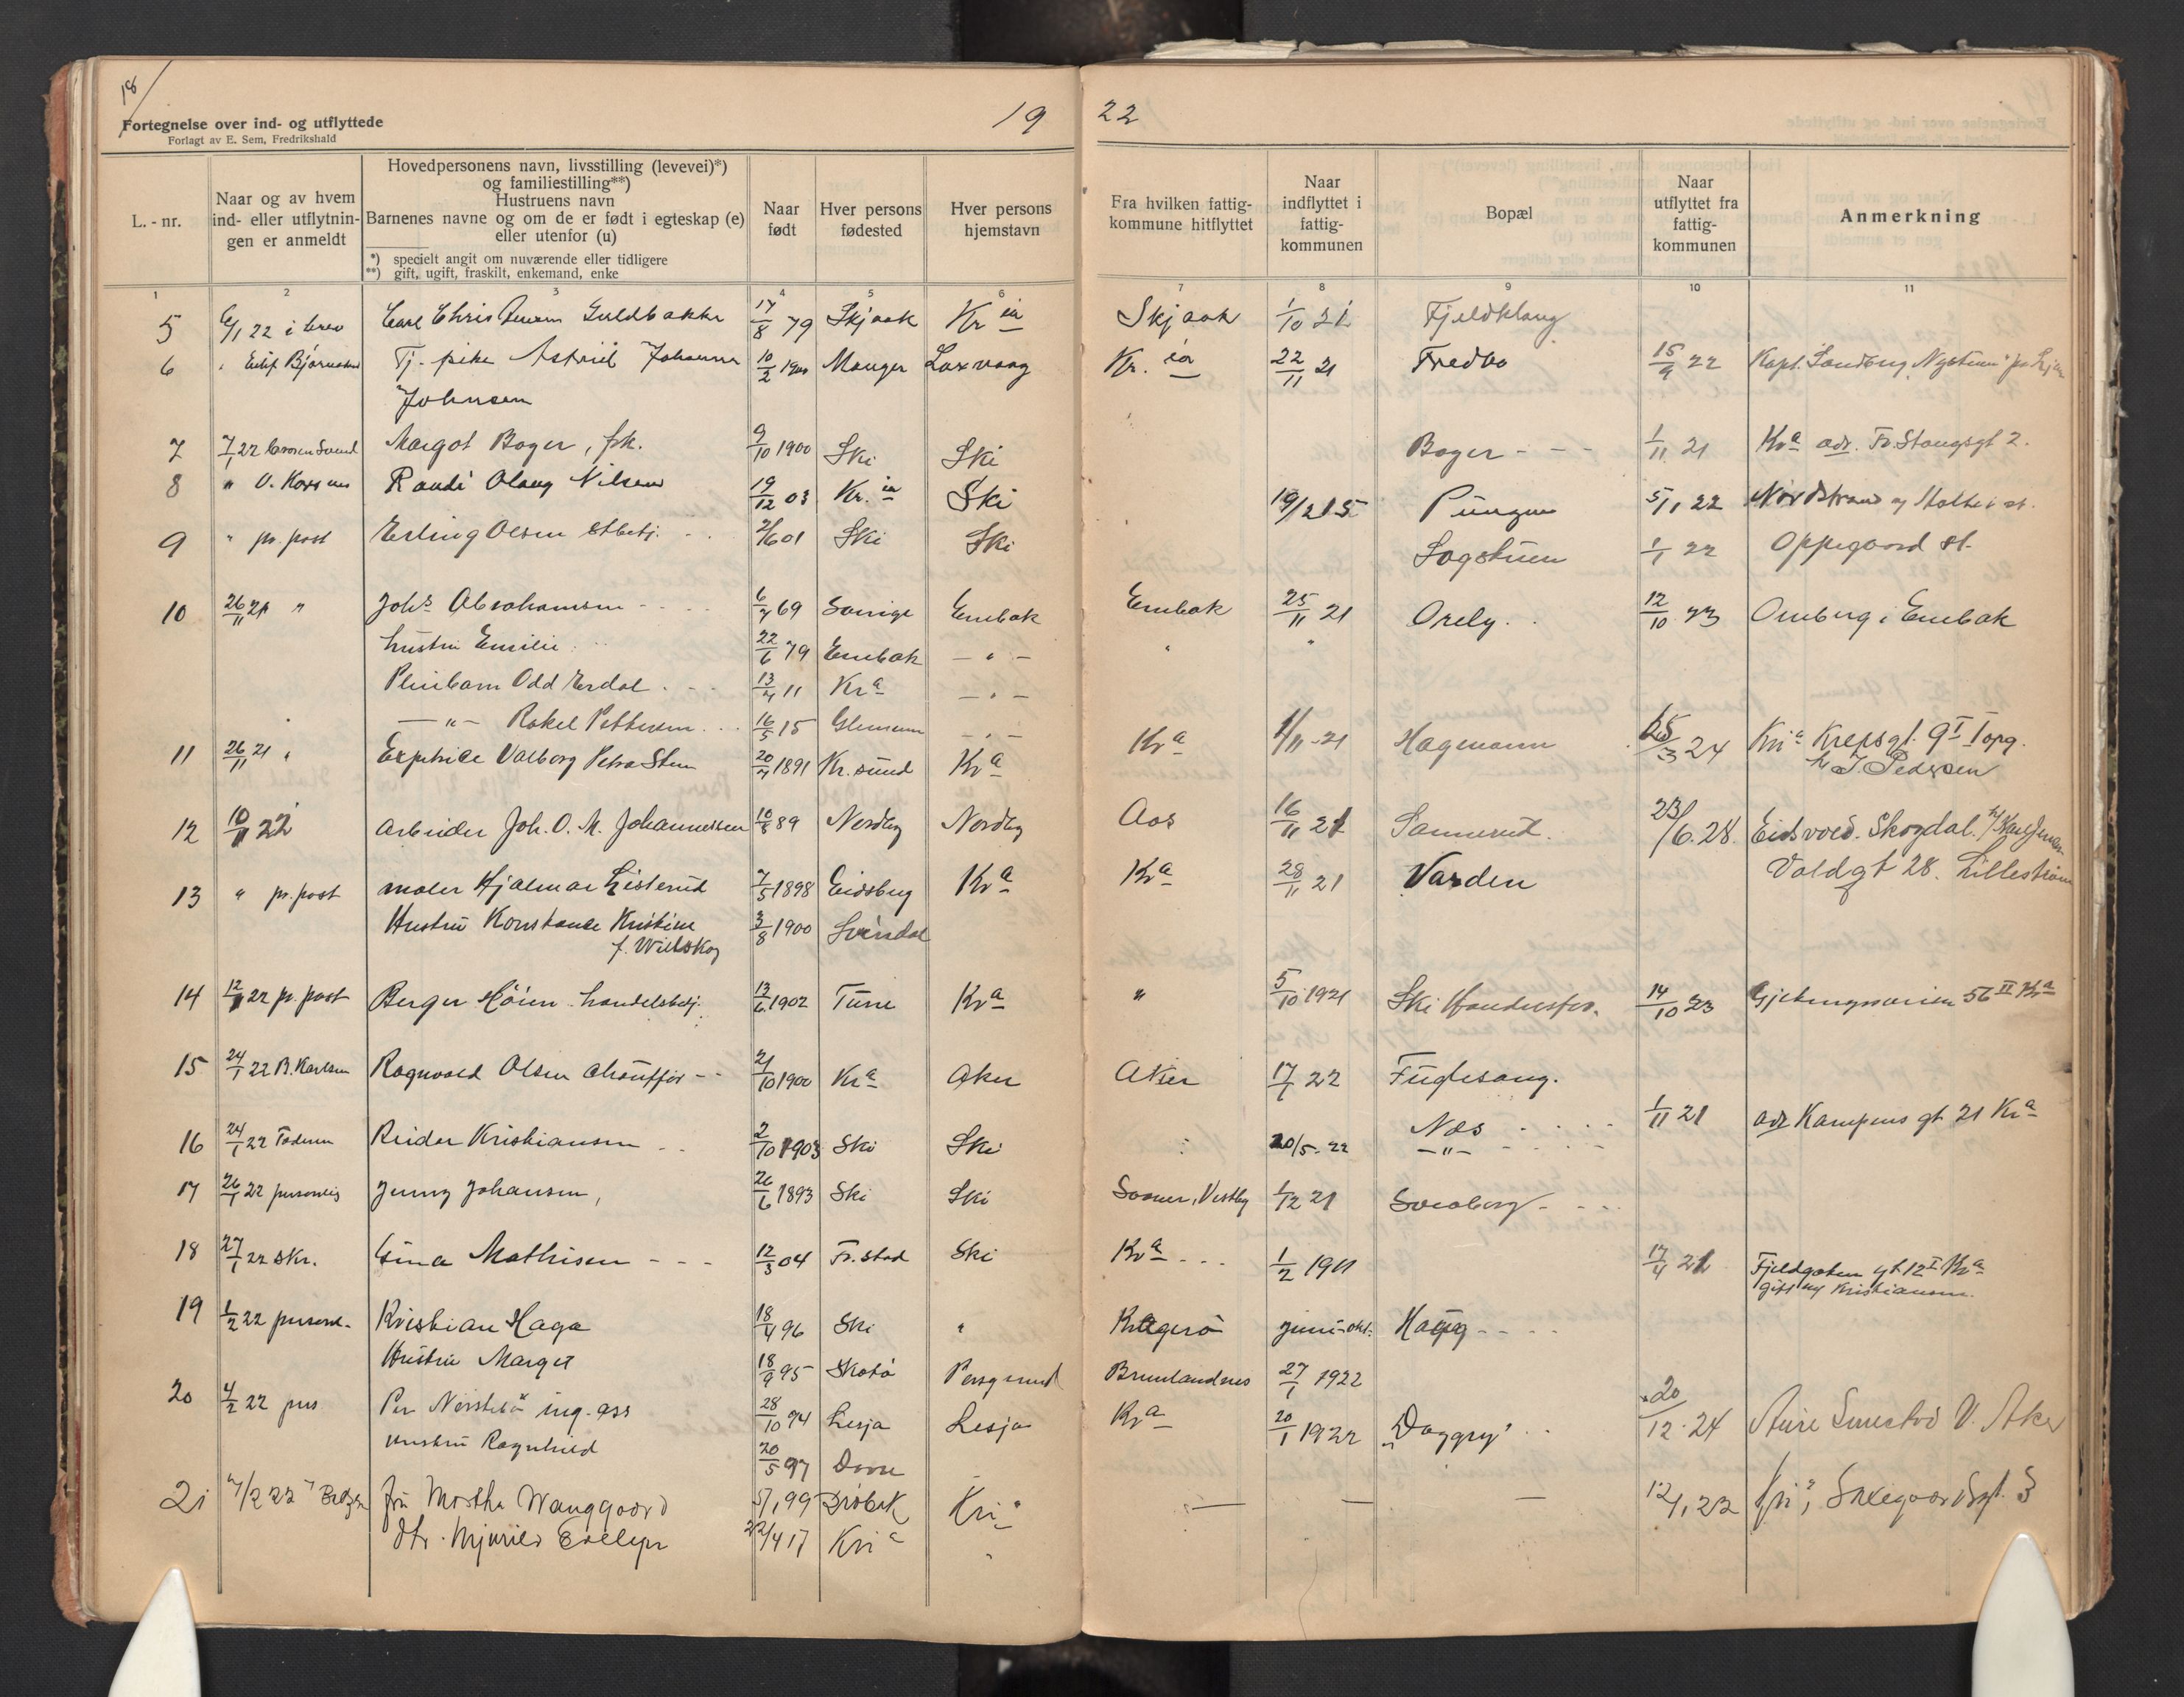 18/
Fortegnelse over ind- og utflyttede
Forlagt av E. Sem, Fredrikshald
19 22
L.-nr.
Naar og av hvem ind- eller utflytningen er anmeldt
Hovedpersonens navn, livsstilling (levevei)*)
og familiestilling**)
Hustruens navn
Barnenes navne og om de er født i egteskap (e)
eller utenfor (u)
*) specielt angit om nuværende eller tidligere
**) gift, ugift, fraskilt, enkemand, enke
Naar født
Hver persons fødested
Hver persons hjemstavn
Fra hvilken fattigkommune hitflyttet
Naar indflyttet i fattigkommunen
Bopæl
Naar utflyttet fra fattigkommunen
Anmerkning
1 2 3 4 5 6 7 8 9 10 11
5 6/1 22 i brev Carl Chris Guldbakke 17/8 79 Skjaak Kr ia Skjaak 1/10 21 Fjeldklang
6 " Tj. pike Astrid Johanna 10/2 1900 Manger Kr. ia 22/11 21 Fredbo 15/9 22
Johnsen
7 7/1 22 Margot Boger, frk. 9/10 1900 Ski Ski Boger - - - 1/11 21 Kra adr. Fr. Stangsgt 2.
8 " O. Randi Olaug Nilsen 19/12 03 Kr. ia Ski 19/2 15 Pungen 5/1 22 Nordstrand
9 " pr. post Erling Olsen stbetj. 2/6 01 Ski Ski Sagstuen 1/1 22 Oppegaard st.
10 26/11 21 " Johs Abrahamsen - - 6/7 69 Sverige Enebak Enebak 25/11 21 Orely. . 12/10 23 Omberg i Enebak
hustru Emilie 22/6 79 Enebak - " - " "
Pleiebarn Odd Erdal . 13/4 11 Kra - " -
- " - Rakel Pettersen . . 16/5 15 Glemmen - " -
11 26/11 21 " Valborg Petra Steen 20/4 1891 Kr.sund Kra Kra 1/11 - 21 Hagmann 25/3 24 Kria Krefsgt. 9 I opg.
h/ J. Pedersen
12 10/1 22 arbeider Joh. O. M. Johannessen 10/8 89 Nordby Nordby Aas 16/11 21 Sannerud. 23/6. 28. Eidsvold. Skogdal.
Voldgt 28. Lillestrøm
13 " pr. post maler Hjalmar Listerud 7/5 1898 Eidsberg Kra Kra 28/11 21 Varden
Hustru Konstanse Kristine 3/8 1900 Svindal
f. Willskog
14 12/1 22 pr. post Berger Høien handelsbetj. 13/6 1902 Tune Kra " 5/10 1921 Ski Handelsfor. 14/10 23 56 II Kra
15 24/1 22 R. Karlsen Ragnvald Olsen chauffør - - 21/10 1900 Kra Aker Aker 17/1 22 Fuglesang.
16 24/1 22 Faderen Reidar Kristiansen . . 2/10 1903 Ski Ski Næs 1/11 21 adr Kampens gt 21 Kra
20/5. 22 - " -
17 26/1 22 personlig Jenny Johansen, 26/6 1893 Ski Ski Sooner, Vestby 1/12 21 Solberg - . . .
18 27/1 22 skr. Gina Mathisen - - - 12/3 04 Fr.stad Ski Kra . . . 1/2 1911 17/4 21 Fjeldgaten gt 12 I Kra
gift m/ Kristiansen.
19 1/2 22 personl. Kristian Haga 18/4 96 Ski " Kragerø juni-okt. Haug - - - -
Hustru Marget 18/9 95 Skatø Porsgrund Brunlandnes 27/1 1922
20 4/2 22 pers Per Nørstebø ing. ass 28/10 94 Lesja Lesja Kra 20/1 1922 "Daggry" . . 20/12. 24 V. Aker
Hustru Ragnhild 20/5 97 Dovre
21 7/2 22 fru Martha Wanggaard 5/1 99 Drøbak Kria - - - 12/1, 22 Kria,
dtr. 22/4 17 Kria "